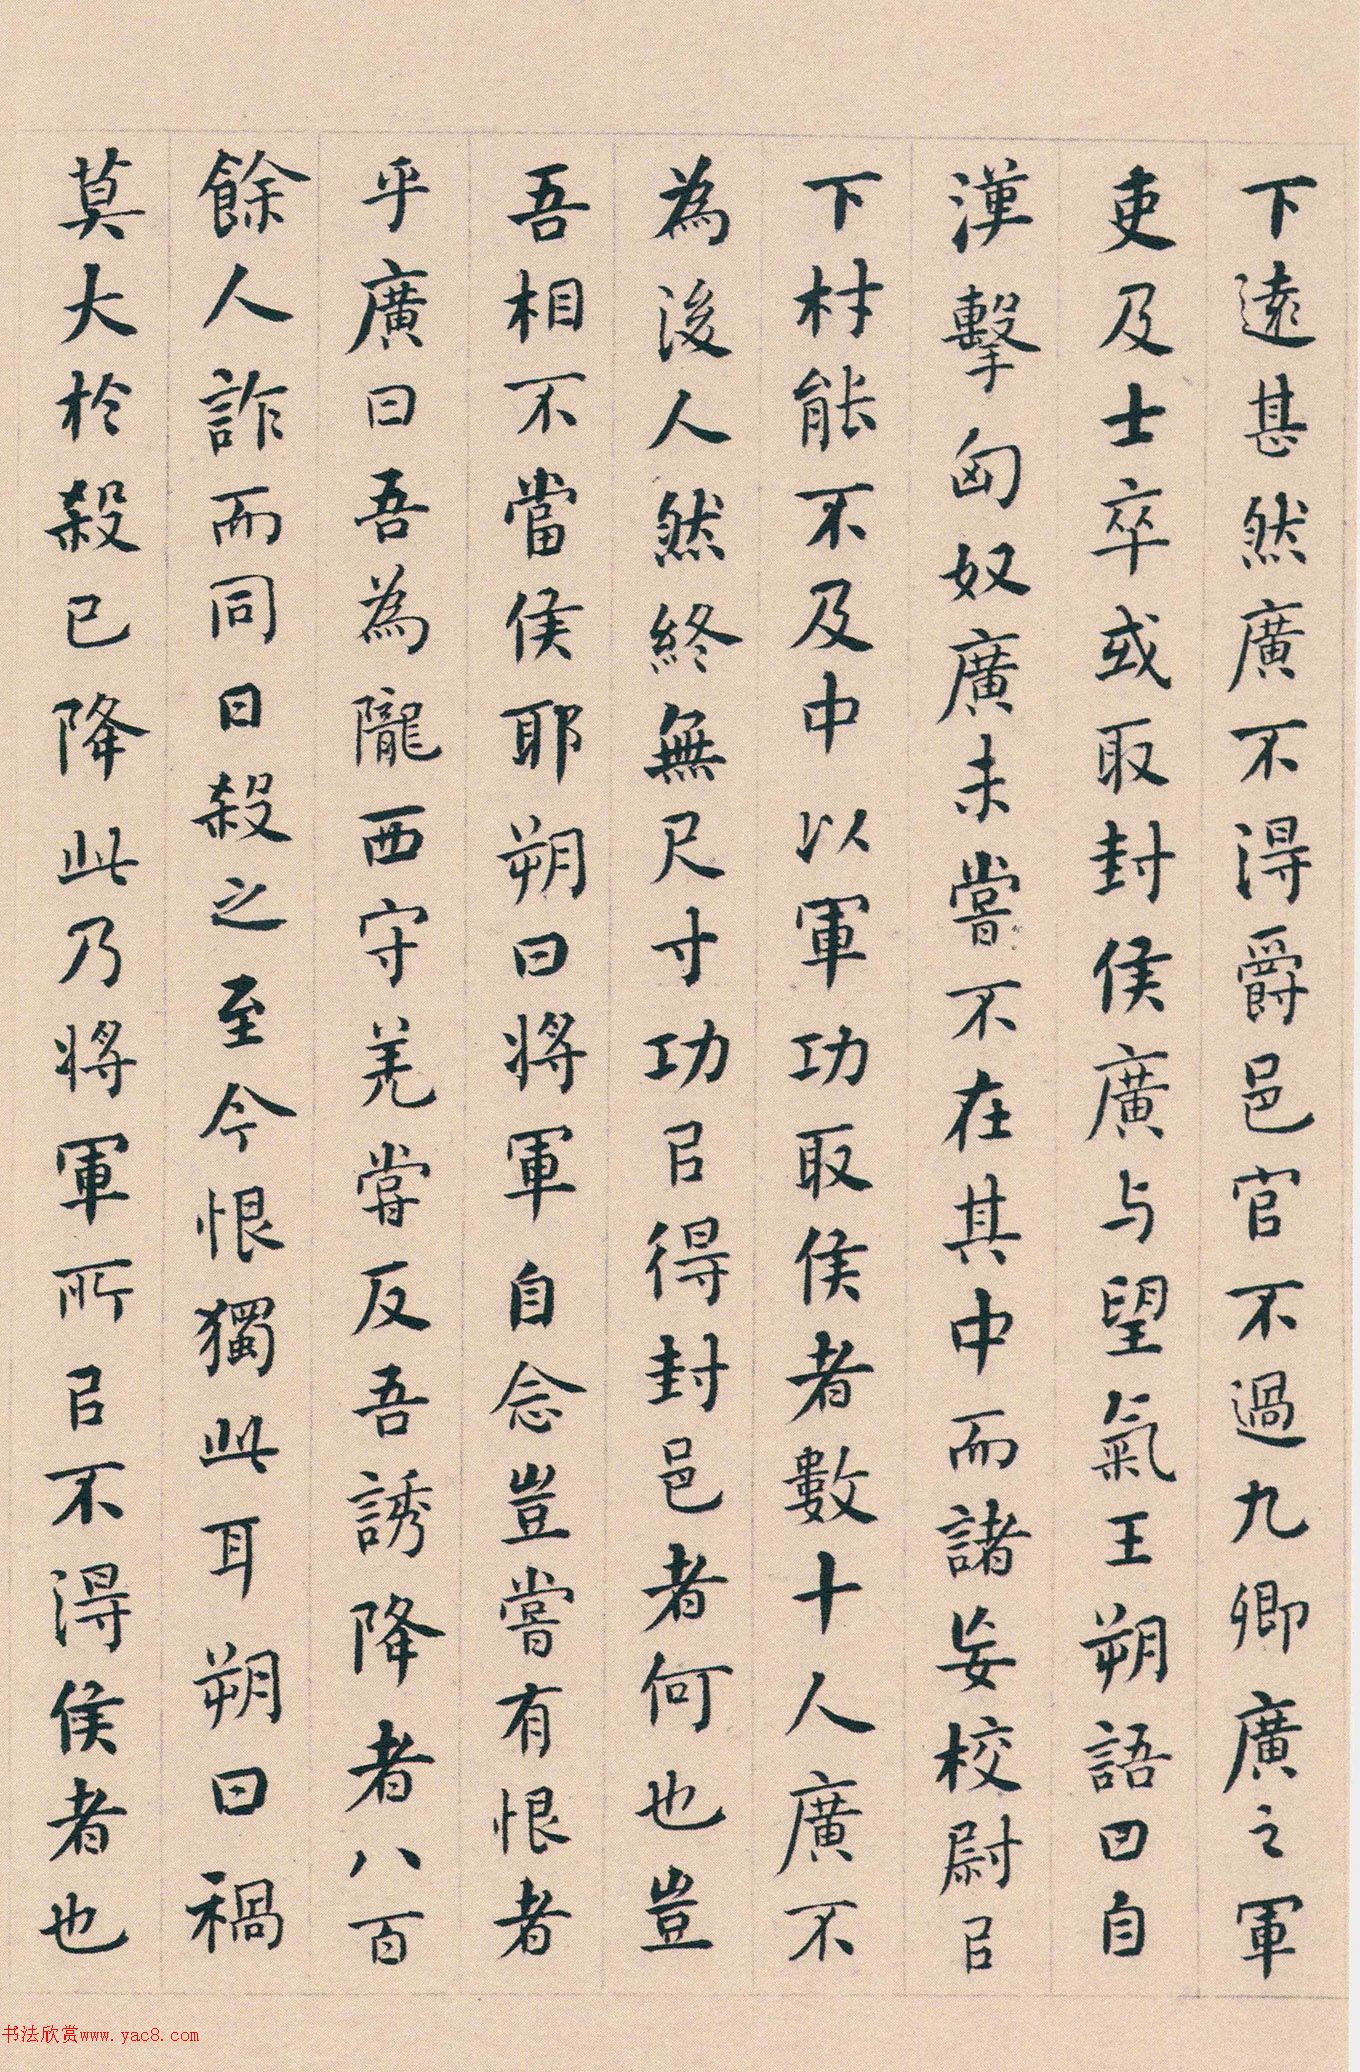 下遠甚然廣不得爵邑官不過九卿廣之軍
吏及士卒或取封侯廣与望氣王朔語曰自
漢擊匈奴廣未嘗不在其中而諸妄校尉㠯
下材能不及中以軍功取侯者數十人廣不
為後人然終無尺寸功㠯得封邑者何也豈
吾相不當侯耶朔曰將軍自念豈嘗有恨者
乎廣曰吾為隴西守羌嘗反吾誘降者八百
餘人詐而同日殺之至今恨獨此耳朔曰禍
莫大於殺已降此乃將軍所㠯不得侯者也
书法欣赏www.yac8.com